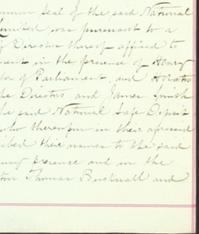 mmon Seal of the said National
Limited was pursuant to a
of Directors thereof affixed to
ment in the presence of Henry
of Parliament, and Horatio
he Directors and James Smith
he said National Safe Deposit
who thereupon in their aforesaid
ribed their names to the said
my presence and in the
Thomas Bucknall and